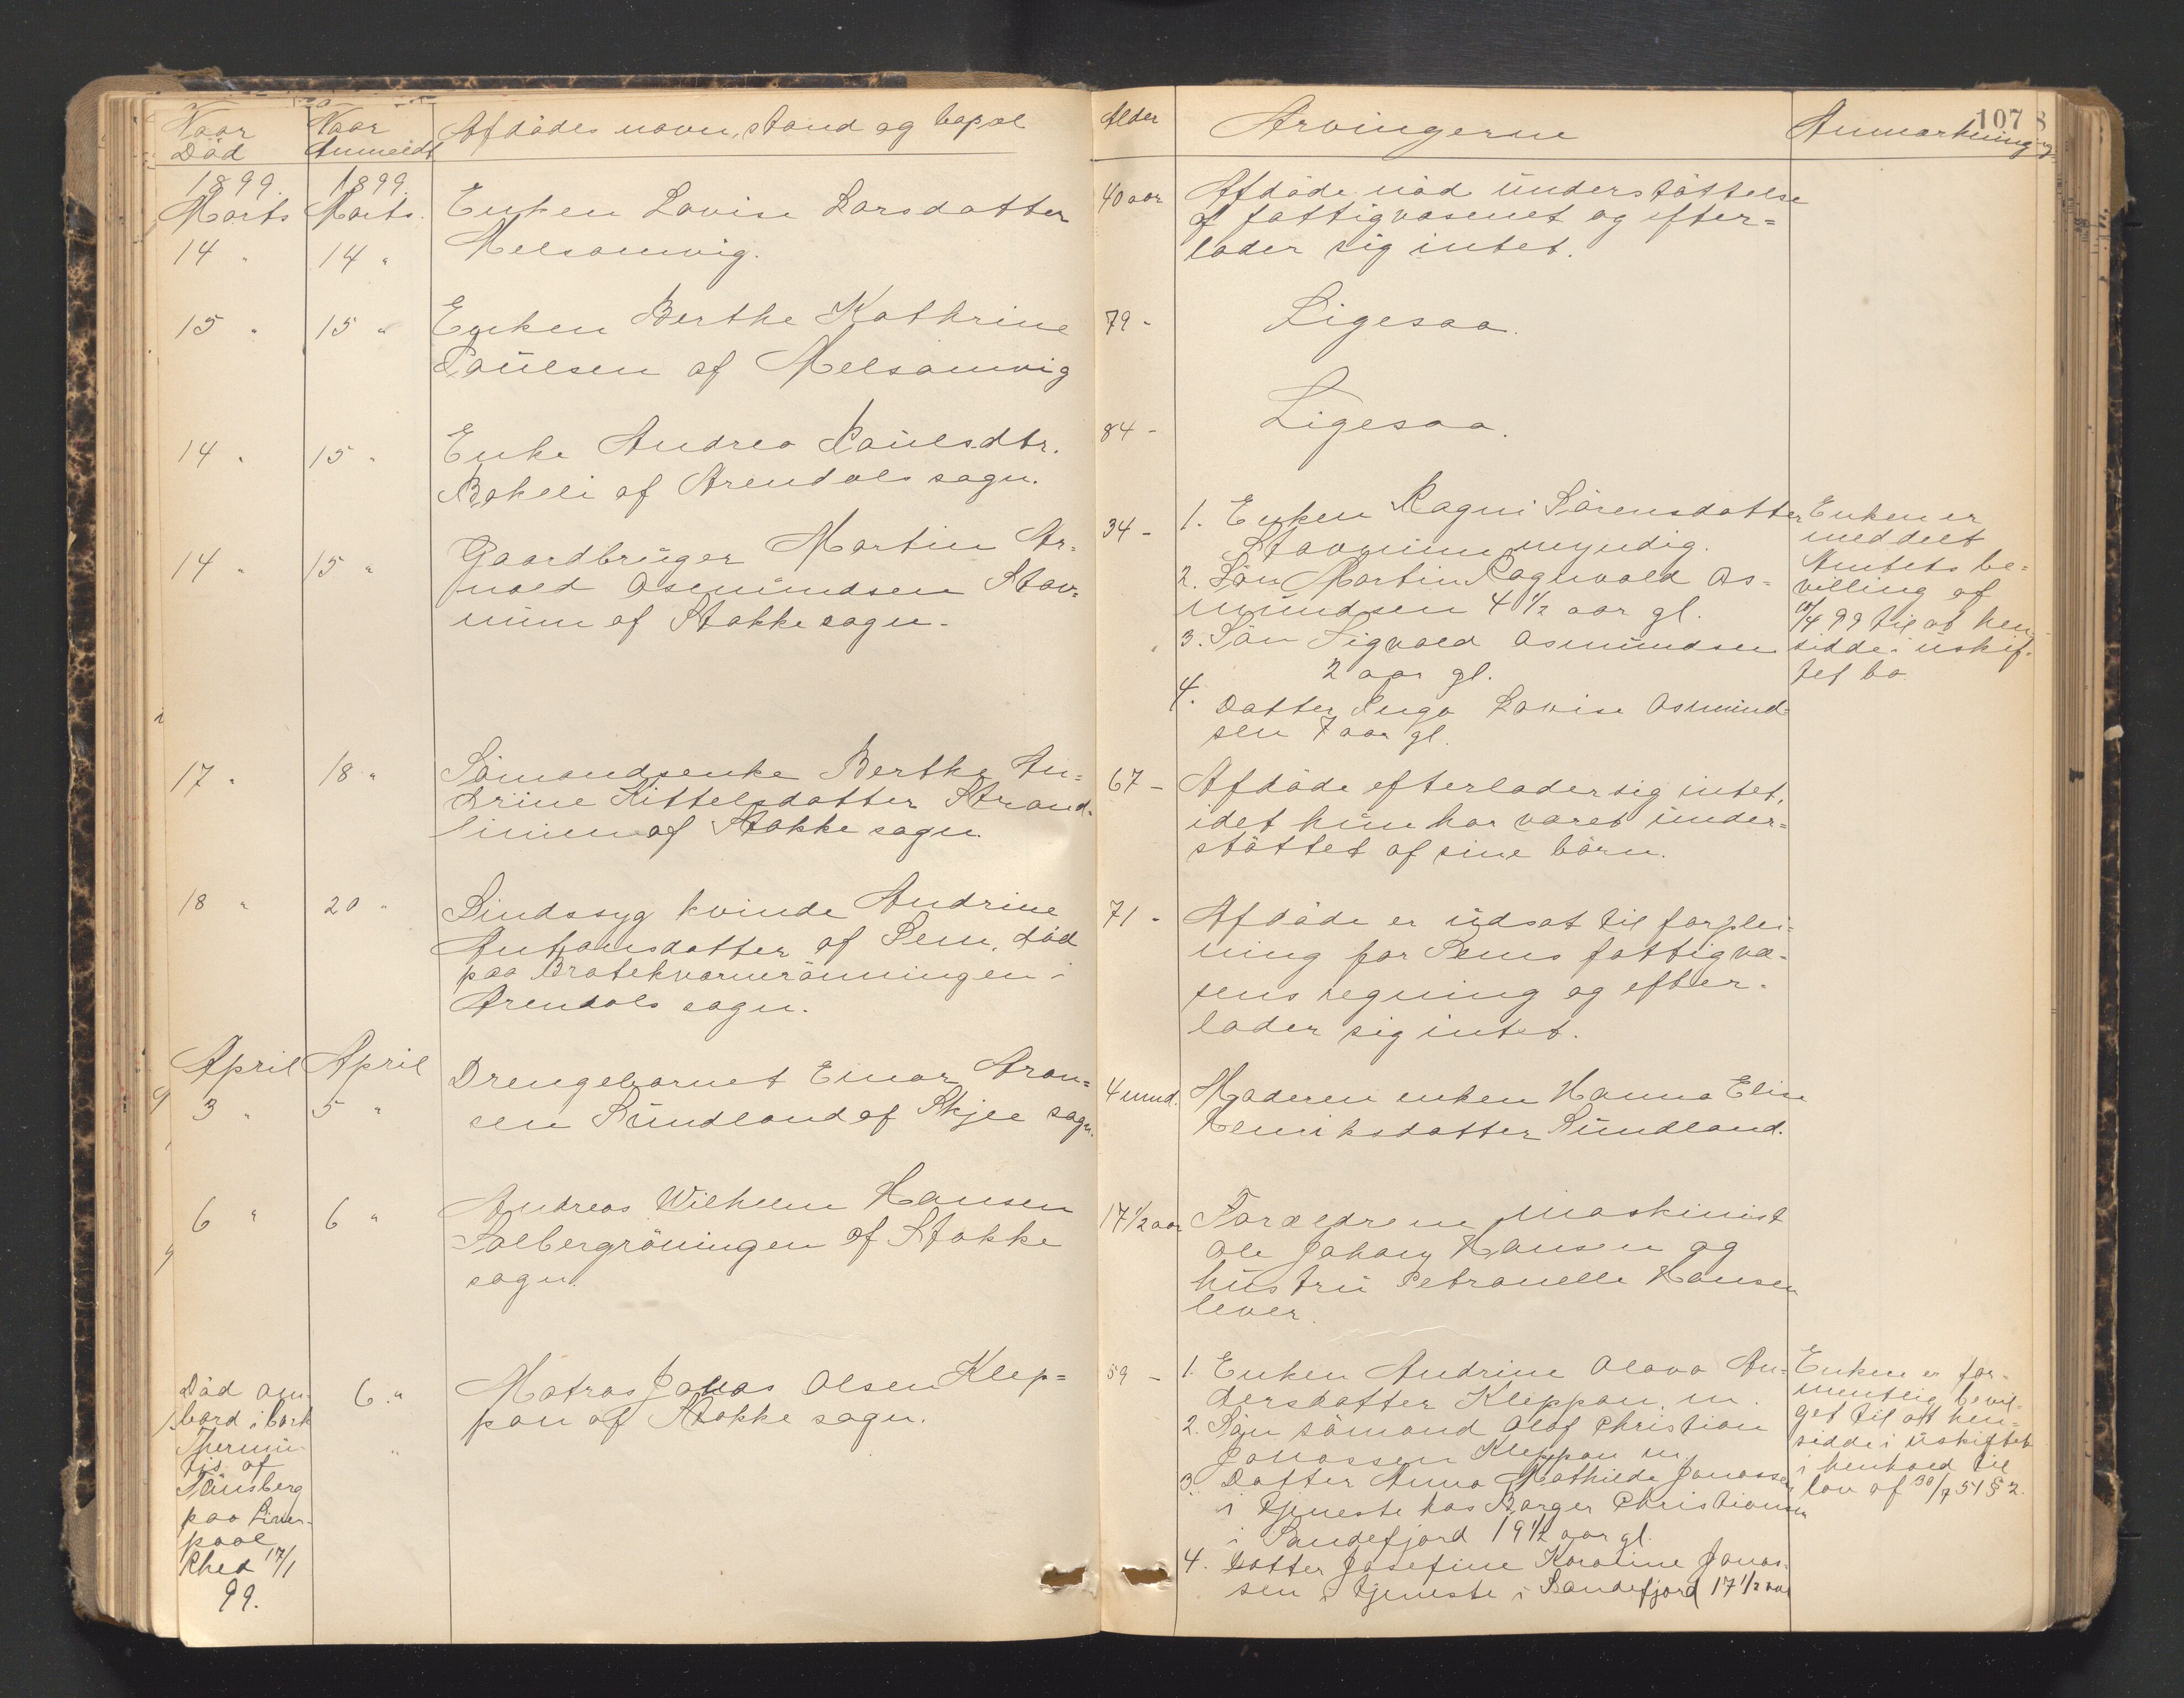 Naar Död
Naar Anmeldt
Afdödes navn, stand og bopæl
Alder
Arvingerne
Anmærkning
107
8
1899.
1899.
Marts
Marts.
14 "
14 "
Enken Lovise Larsdatter
Melsomvig.
40 aar
Afdöde nöd understöttelse
af fattigvæsenet og efter=
lader sig intet.
15 "
15 "
Enken Berthe Kathrine
Paulsen af Melsomvig
79 -
Ligesaa.
14 "
15 "
Enke Andrea Paulsdtr.
Bakeli af Arendals sogn.
84 -
Ligesaa.
14 "
15 "
Gaardbruger Martin Ar=
nold Osmundsen Stav=
num af Stokke sogn.
34 -
1. Enken Ragni Sörensdatter
Stavnum myndig.
2. Sön Martin Ragnvald Os=
mundsen 4 1/2 aar gl.
3. Sön Sigvald Osmundsen
2 aar gl.
4. Datter Inga Lovise Osmund=
sen 7 aar gl.
Enken er
meddelt
Amtets be=
villing af
/4 99 til at hen=
sidde i uskif=
tet bo
17 "
18 "
Sömandsenke Berthe An=
drine Kittelsdatter Strand=
linien af Stokke sogn.
67 -
Afdöde efterlader sig intet,
idet hun har været under=
stöttet af sine börn.
18 "
20 "
Sindssyg kvinde Andrine
Antonsdatter af Sem, död
paa Bratekvarnrönningen i
Arendals sogn.
71 -
Afdöde er udsat til forplei=
ning for Sems fattigvæ=
sens regning og efter=
lader sig intet.
April
April
3 "
5 "
Drengebarnet Einar Aron=
sen Sundland af Skjee sogn.
4 mnd.
Moderen enken Hanna Elise
Henriksdatter Sundland.
6 "
6 "
Andreas Wilhelm Hansen
Solbergröningen af Stokke
sogn.
17 1/2 aar
Forældrene Maskinist
Ole Johan Hansen og
hustru Petronelle Hansen
lever.
Död om=
bord i bark
Thermu=
tis af
Tönsberg
paa Liver=
pool
Rhed 17/1
99.
6 "
"
Matros Jonas Olsen Klep=
pan af Stokke sogn.
59 -
1. Enken Andrine Olava An=
dersdatter Kleppan, m.
2. Sön sömand Olaf Christian
Jonassen Kleppan m
3. Datter Anna Mathilde Jonassen
i tjeneste hos Borger Christiansen
i Sandefjord 19 1/2 aar gl.
4. Datter Josefine Karoline Jonas=
sen i tjeneste i Sandefjord 17 1/2 aar
Enken er for=
mentlig bevil=
get til att hen=
sidde i uskiftet
i henhold til
lov af 30/7 51 § 2.